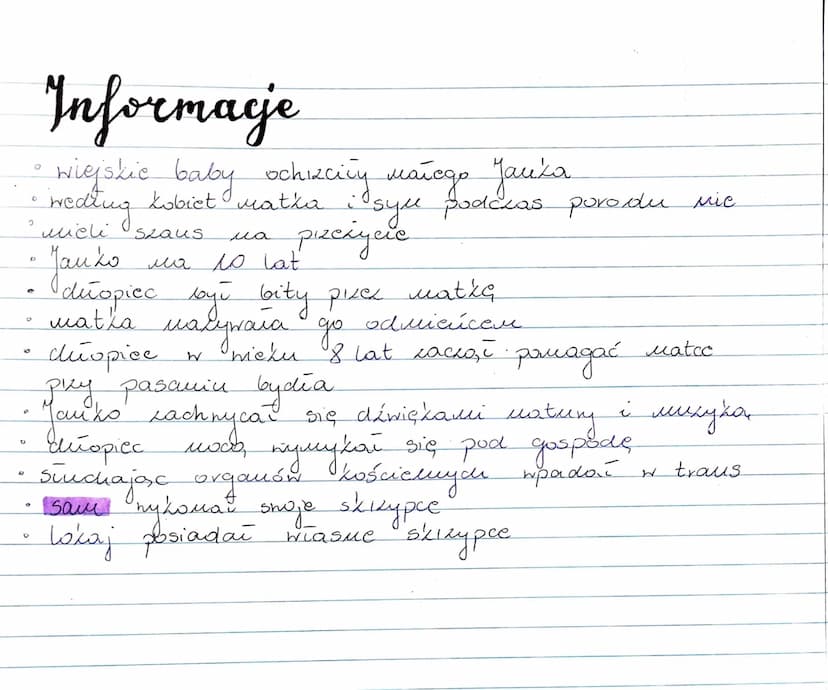 Informacje
• wiejskie baby ochrzciły małego Janka
• według kobiet matka i syn podczas porodu nie
mieli szans na przeżycie
• Janko ma 10 lat
• chłopiec był bity przez matkę
• matka nazywała go odmieńcem
• chłopiec w wieku 8 lat zaczął pomagać matce
przy pasaniu bydła
• Janko zachwycał się dźwiękami natury i muzyką
• chłopiec nocą wymykał się pod gospodę
• słuchając organów kościelnych wpadał w trans
• sam wykonał swoje skrzypce
• lokaj posiadał własne skrzypce